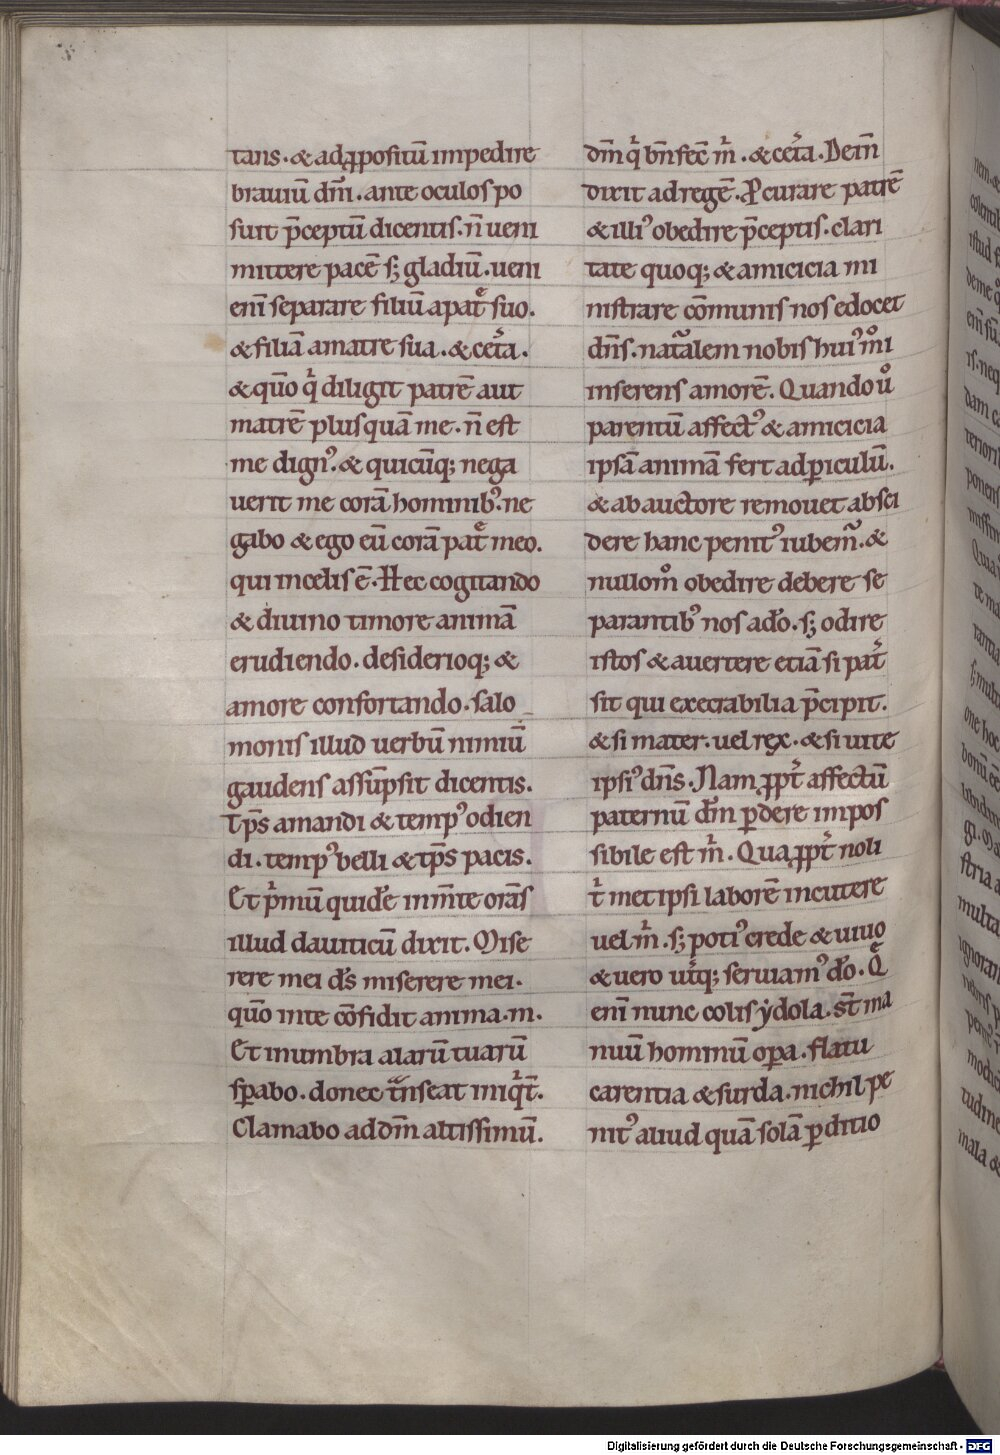 tans. & ad ꝓpositū impedire
brauiū dn̄i. ante oculos po
suit p̄ceptū dicentis. n̄ ueni
mittere pacē sꝫ gladiū. ueni
eni separare filiū a pat̄ suo.
& filiā a matre sua. & cet̄a.
& qm̄o qͥ diligit patrē aut
matrē plusquā me. n̄ est
me dignꝰ. & quicūqꝫ nega
uerit me corā hominibꝰ. ne
gabo & ego eū corā pat̄ meo.
qui in celis ē. Hec cogitando
& diuino timore animā
erudiendo. desiderioqꝫ &
amore confortando. salo
monis illud uerbū nimiū
gaudens assūpsit dicentis.
Tp̄s amandi & tempꝰ odien
di. tempꝰ belli & tp̄s pacis.
Et pͥmū quidē in m̄te orās
illud dauiticū dixit. Mise
rere mei ds̄ miserere mei.
qm̄o in te cōfidit anima. m.
Et in umbra alarū tuarū
sꝑabo. donec t̄nseat iniqͥt̄.
Clamabo ad dm̄ altissimū.
dm̄ qͥ bn̄fec̄ m̄. & cet̄a. Dein̄
dixit ad regē. ꝓcurare patrē
& illiꝰ obedire p̄ceptis. clari
tate quoqꝫ & amicicia mi
nistrare cōmunis nos edocet
dn̄s. natᷓalem nobis huiꝰmͦi
inserens amorē. Quando uͦ
parentū affectꝰ & amicicia
ipsā animā fert ad ꝑiculū.
& ab auctore remouet absci
dere hanc penitꝰ iubem̄. &
nullomͦ obedire debere se
parantibꝰ nos a dō. sꝫ odire
istos & auertere etiā si pat̄
sit qui execrabilia p̄cipit.
& si mater. uel rex. & si uite
ipsiꝰ dn̄s. Nam ꝓpt̄ affectū
paternū dm̄ ꝑdere impos
sibile est m̄. Quaꝓpt̄ noli
t̄ metipsi laborē incutere
uel m̄. sꝫ potiꝰ crede & uiuo
& uero ut̄qꝫ seruiamꝰ dō. Q̄
eni nunc colis ẏdola. st̄ ma
nuū hominū oꝑa. flatu
carentia & surda. nichil pe
nitꝰ aliud quā solā ꝑditio